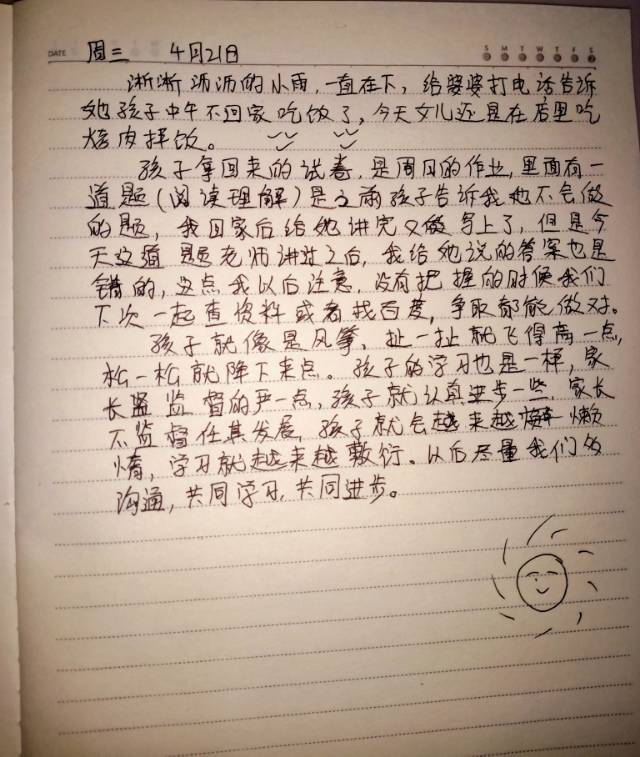 DATE 周三 4月21日 S M T W T F S
淅淅沥沥的小雨，一直在下，给婆婆打电话告诉
她孩子中午不回家吃饭了，今天女儿还是在店里吃
烤肉拌饭。
孩子拿回来的试卷，是周日的作业，里面有一
道题（阅读理解）是之前孩子告诉我她不会做
的题，我回家后给她讲完又做写上了，但是今
天这道题老师讲过之后，我给她说的答案也是
错的，这点我以后注意，没有把握的时候我们
下次一起查资料或者找百度，争取都能做对。
孩子就像是风筝，扯一扯就飞得高一点，
松一松就降下来点。孩子的学习也是一样，家
长监监督的严一点，孩子就认真进步一些，家长
不监督任其发展，孩子就会越来越懒
惰，学习就越来越敷衍。以后尽量我们多
沟通，共同学习，共同进步。